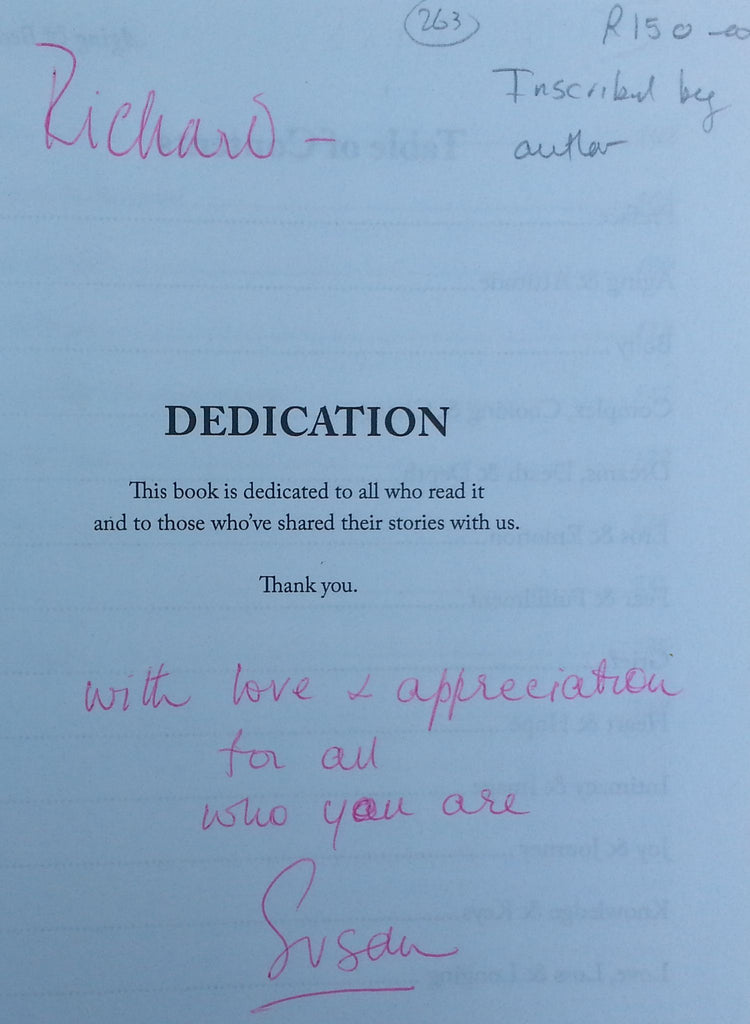 263
R150-00
Inscribed by
author
Richard -
DEDICATION
This book is dedicated to all who read it
and to those who've shared their stories with us.
Thank you.
with love & appreciation
for all
who you are
Susan